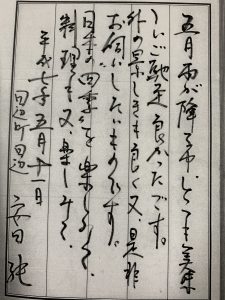 五月雨が降る とても美味
しいご馳走良かったです。
外の景しきも良く又、是非
お伺いしたいものです。
日本の四季を楽しみ
料理も又、楽しみ
平成七年五月十一日
田辺町田辺 安田 純